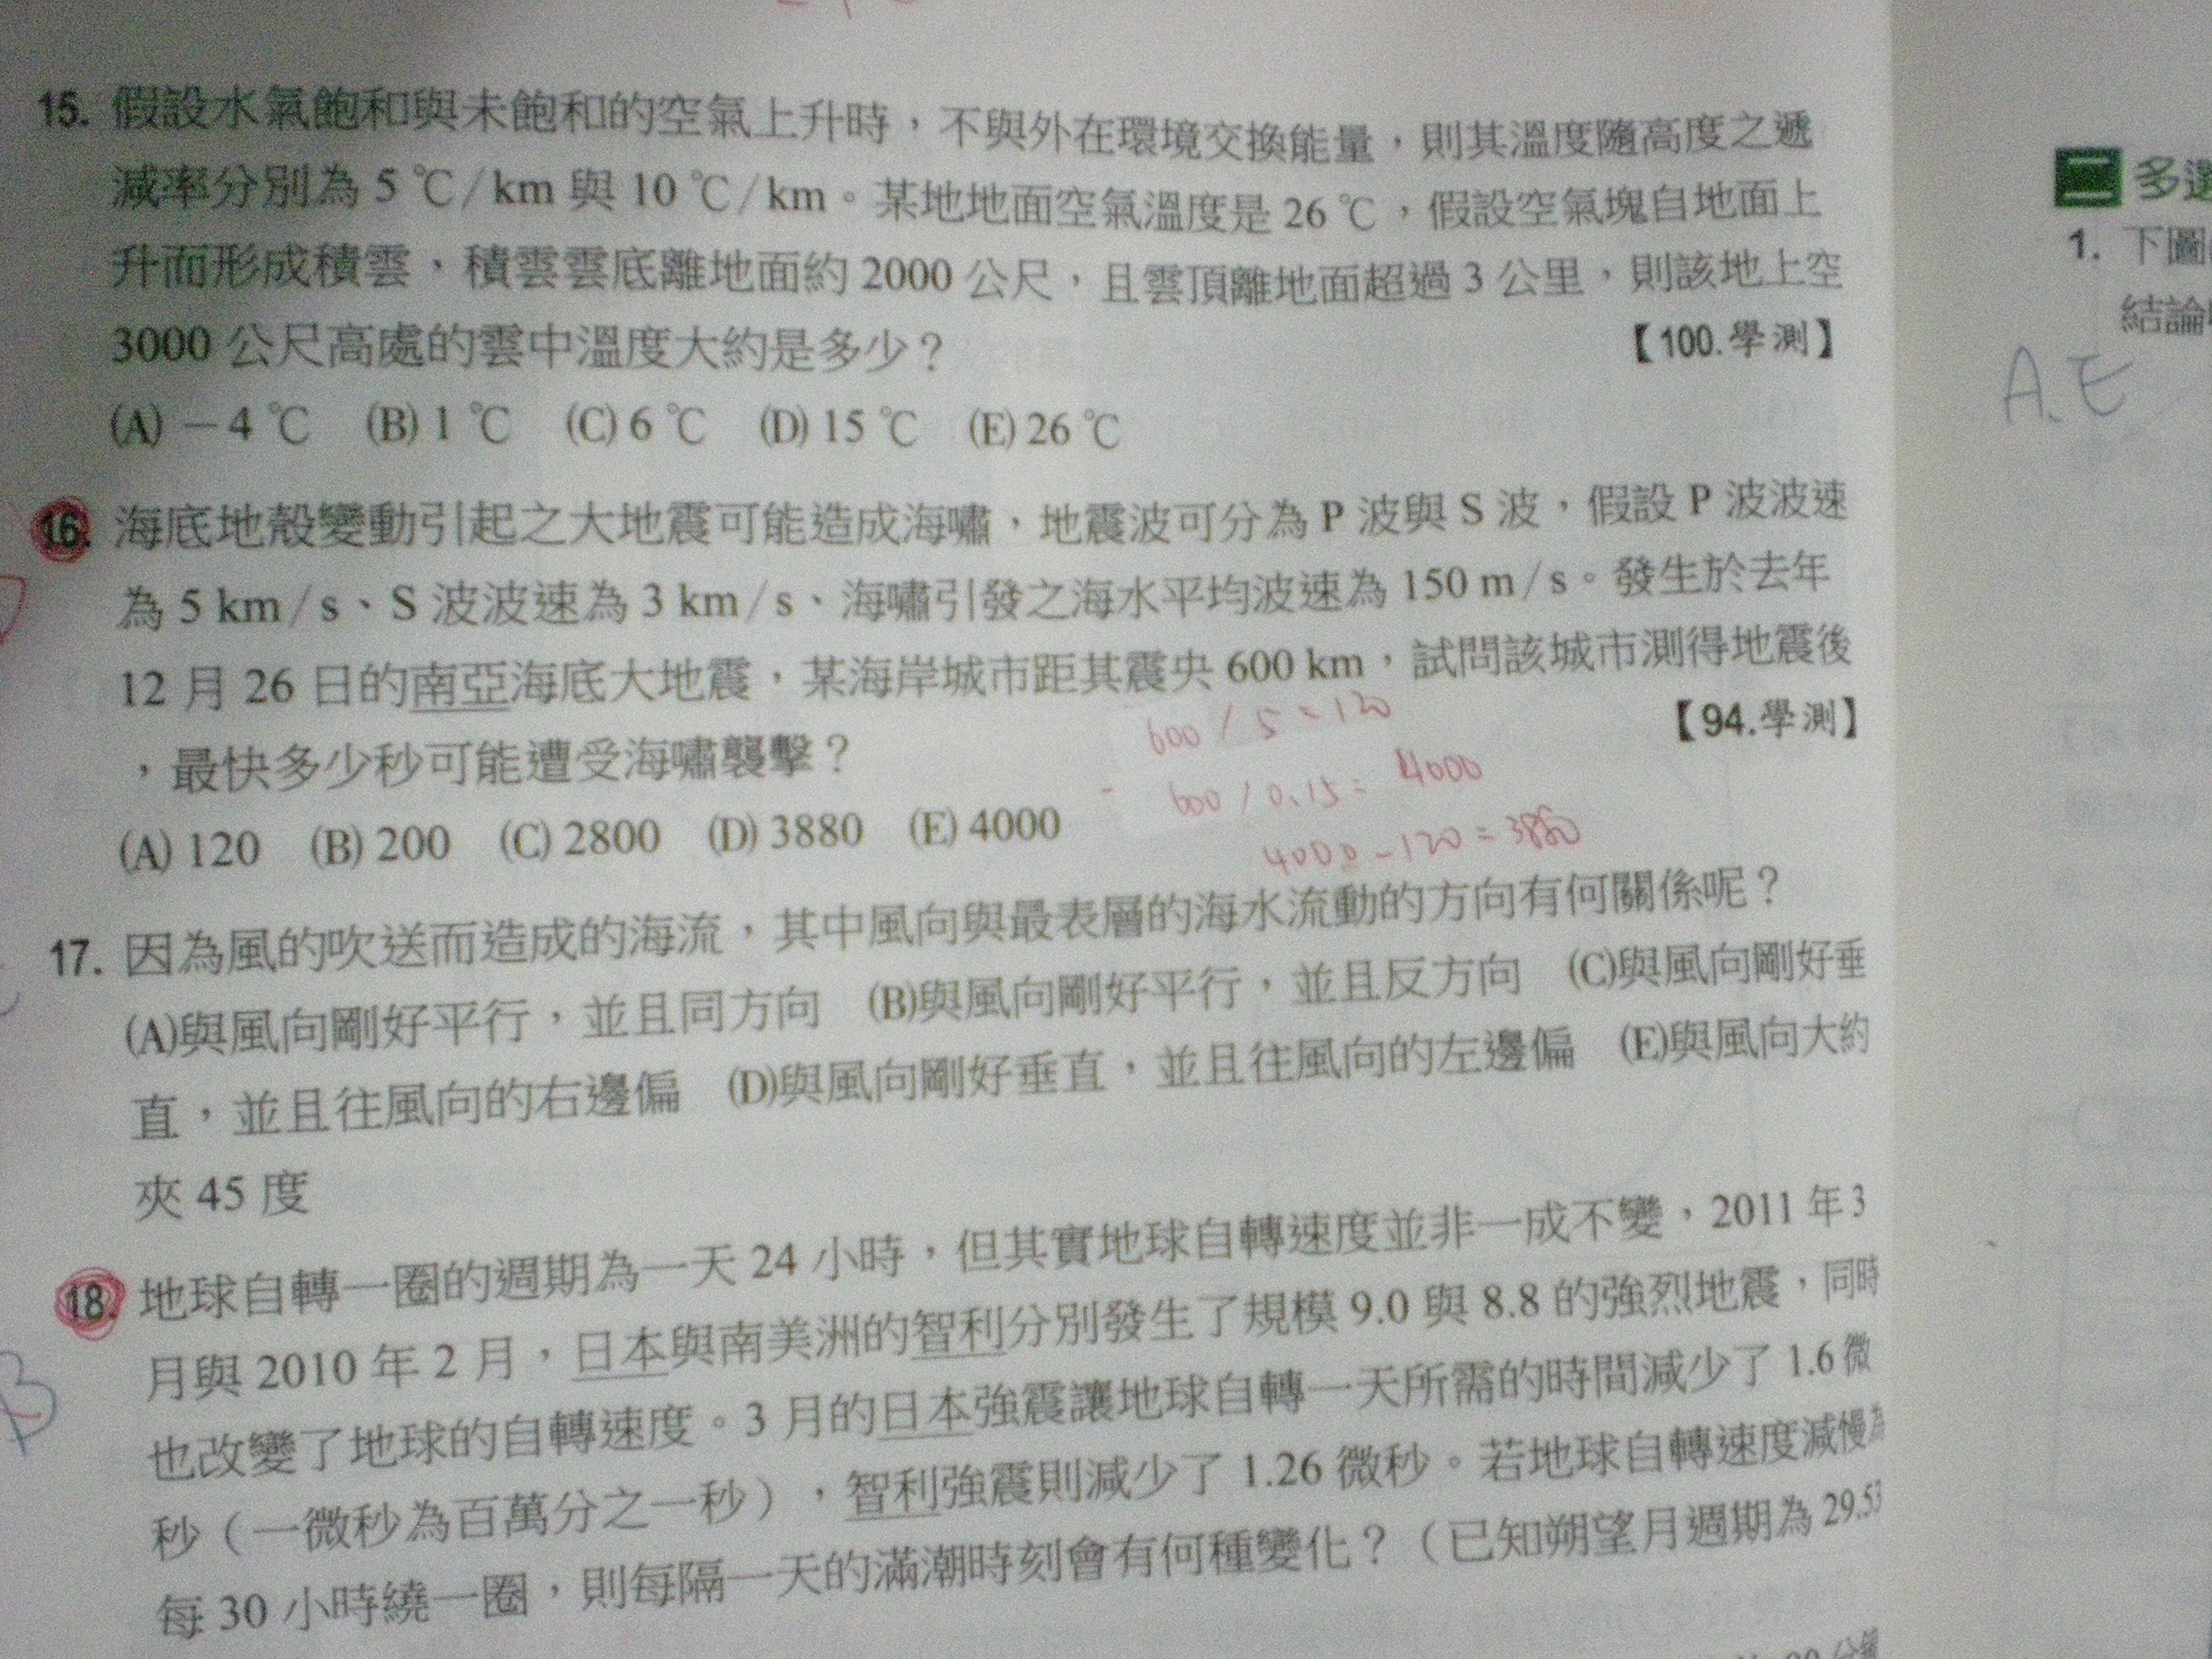 15. 假設水氣飽和與未飽和的空氣上升時，不與外在環境交換能量，則其溫度隨高度之遞
減率分別為 5 ℃/km 與 10 ℃/km。某地地面空氣溫度是 26 ℃，假設空氣塊自地面上
升而形成積雲，積雲雲底離地面約 2000 公尺，且雲頂離地面超過 3 公里，則該地上空
3000 公尺高處的雲中溫度大約是多少？ 【100.學測】
(A) －4 ℃ (B) 1 ℃ (C) 6 ℃ (D) 15 ℃ (E) 26 ℃
16. 海底地殼變動引起之大地震可能造成海嘯，地震波可分為 P 波與 S 波，假設 P 波波速
為 5 km/s、S 波波速為 3 km/s、海嘯引發之海水平均波速為 150 m/s。發生於去年
12 月 26 日的南亞海底大地震，某海岸城市距其震央 600 km，試問該城市測得地震後
，最快多少秒可能遭受海嘯襲擊？ 【94.學測】
600 / 5 = 120
600 / 0.15 = 4000
4000 - 120 = 3880
(A) 120 (B) 200 (C) 2800 (D) 3880 (E) 4000
17. 因為風的吹送而造成的海流，其中風向與最表層的海水流動的方向有何關係呢？
(A)與風向剛好平行，並且同方向 (B)與風向剛好平行，並且反方向 (C)與風向剛好垂
直，並且往風向的右邊偏 (D)與風向剛好垂直，並且往風向的左邊偏 (E)與風向大約
夾 45 度
18. 地球自轉一圈的週期為一天 24 小時，但其實地球自轉速度並非一成不變，2011 年 3
月與 2010 年 2 月，日本與南美洲的智利分別發生了規模 9.0 與 8.8 的強烈地震，同時
也改變了地球的自轉速度。3 月的日本強震讓地球自轉一天所需的時間減少了 1.6 微
秒（一微秒為百萬分之一秒），智利強震則減少了 1.26 微秒。若地球自轉速度減慢為
每 30 小時繞一圈，則每隔一天的滿潮時刻會有何種變化？（已知朔望月週期為 29.53
B
二 多選
1. 下圖
結論
A.E